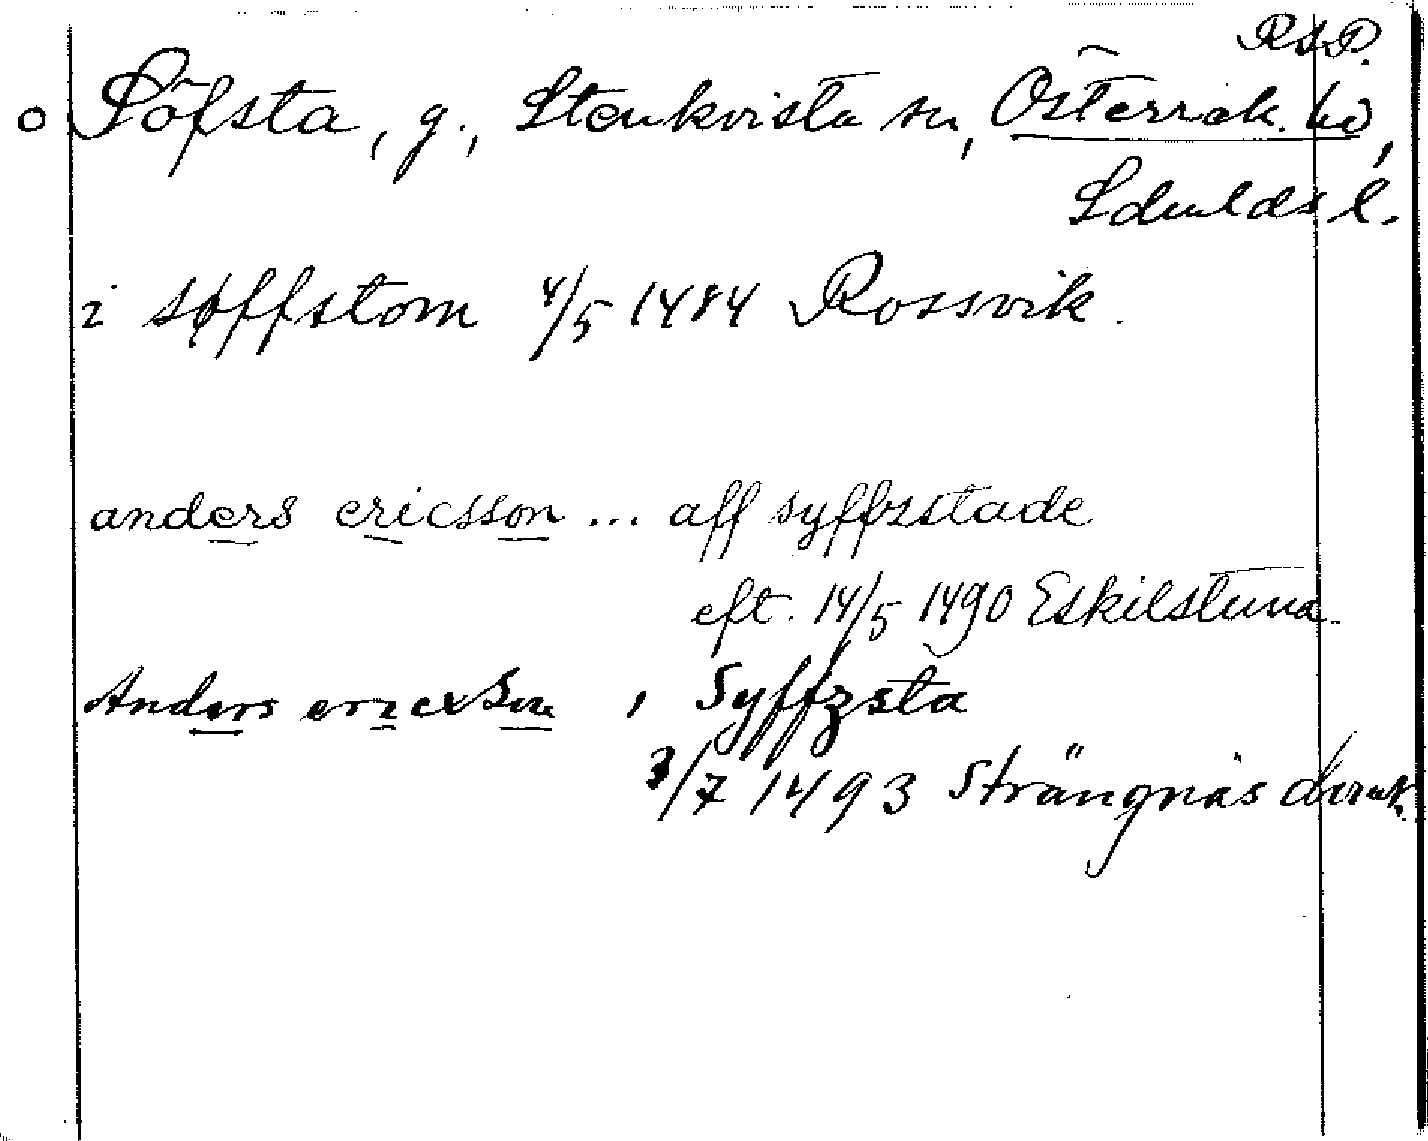 RSP.
o Söfsta, g., Stenkvista sn, Österrek. hd,
Sdmlds l.
i søffstom 4/5 1484 Rossvik.
anders ericsson ... aff syffzstade
eft. 14/5 1490 Eskilstuna.
Anders ericxSon , Syffzsta
3/7 1493 Strängnäs